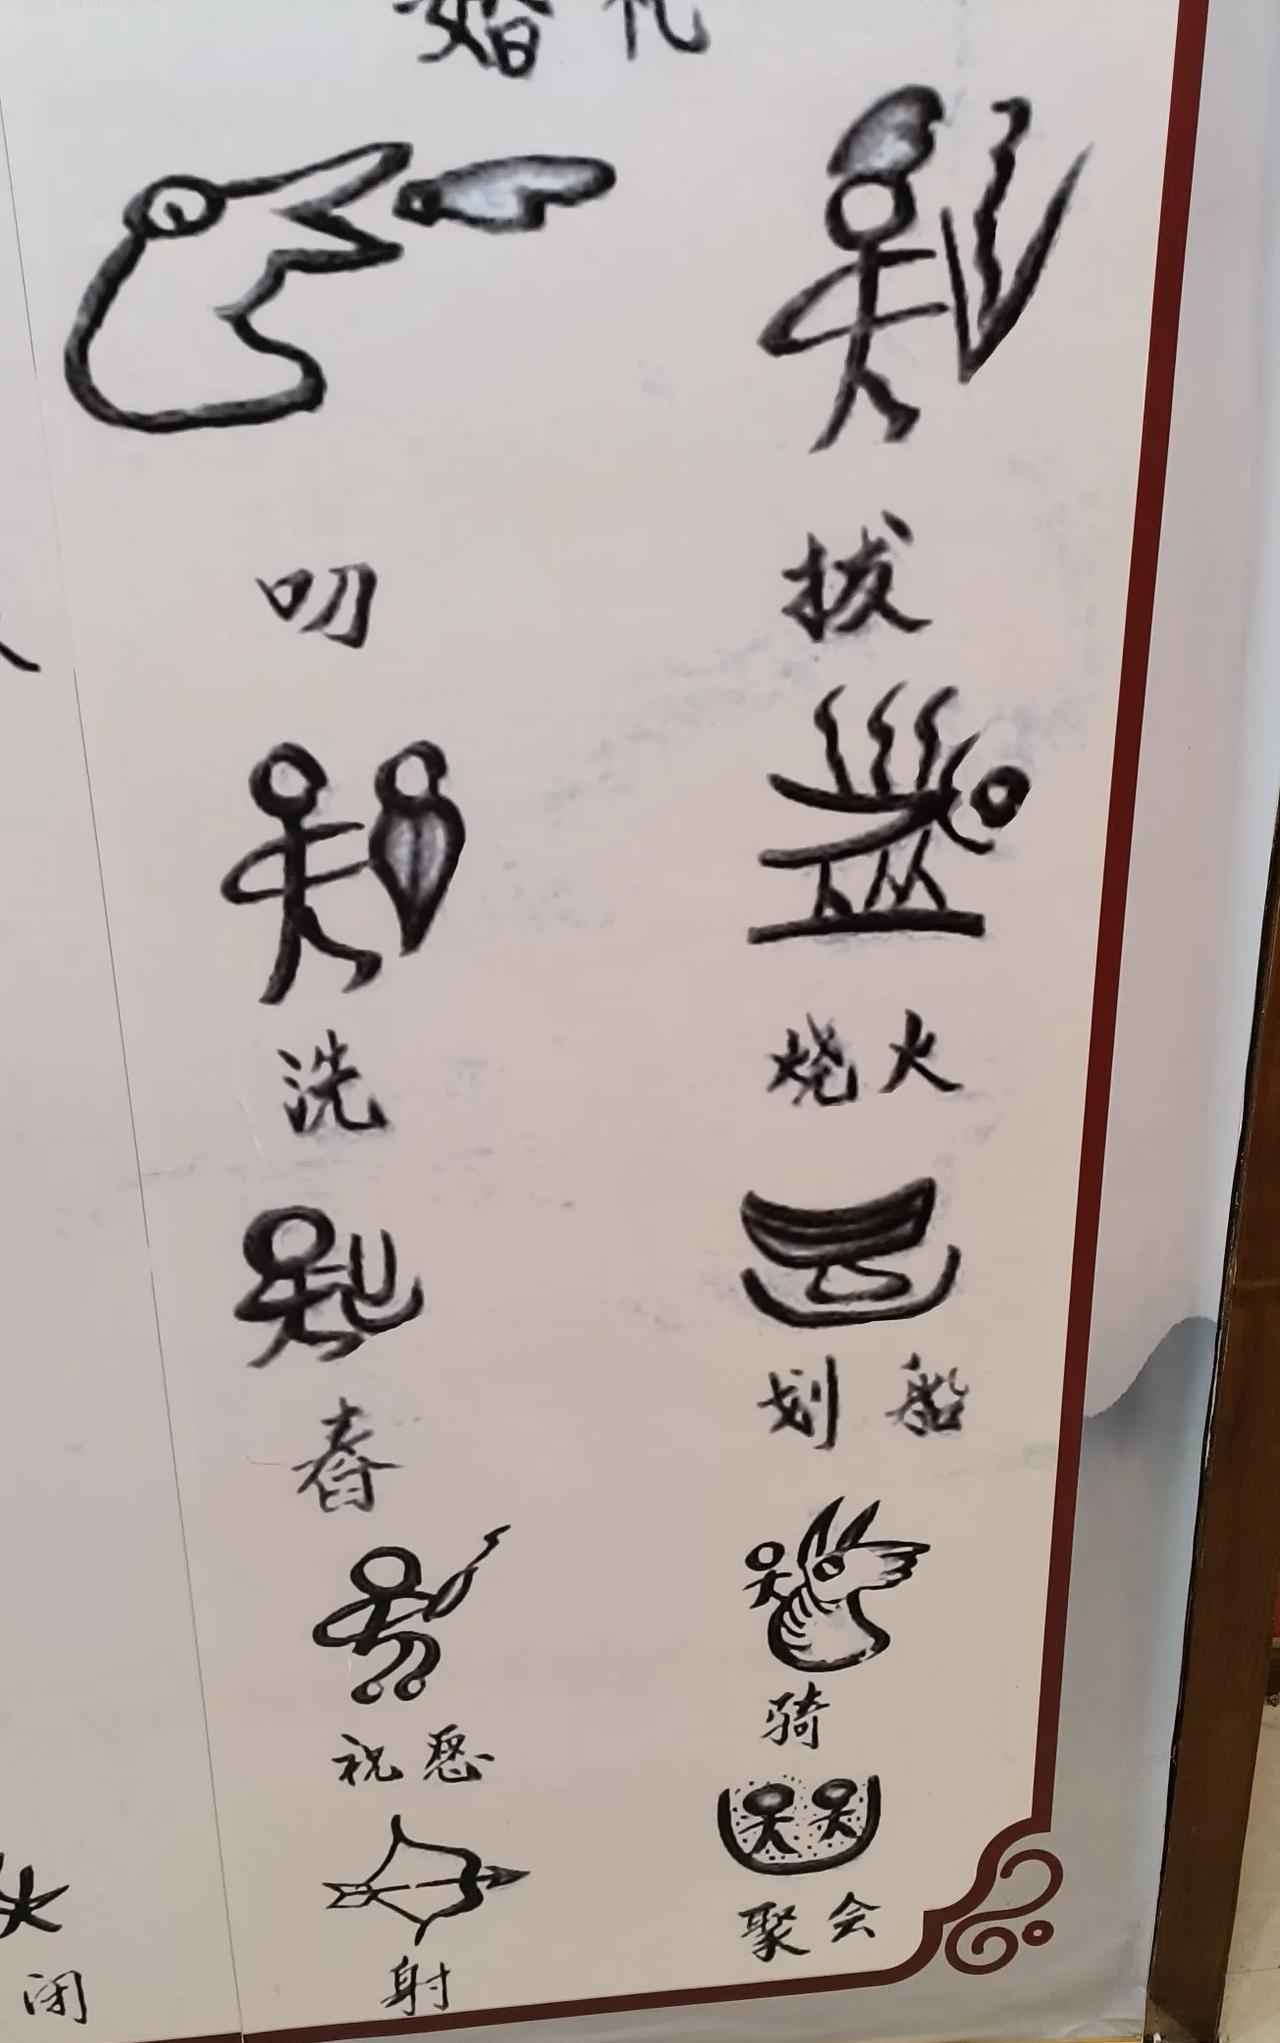 婚礼
叼 拔
洗 烧火
舂 划船
祝愿 骑
射 聚会
闭